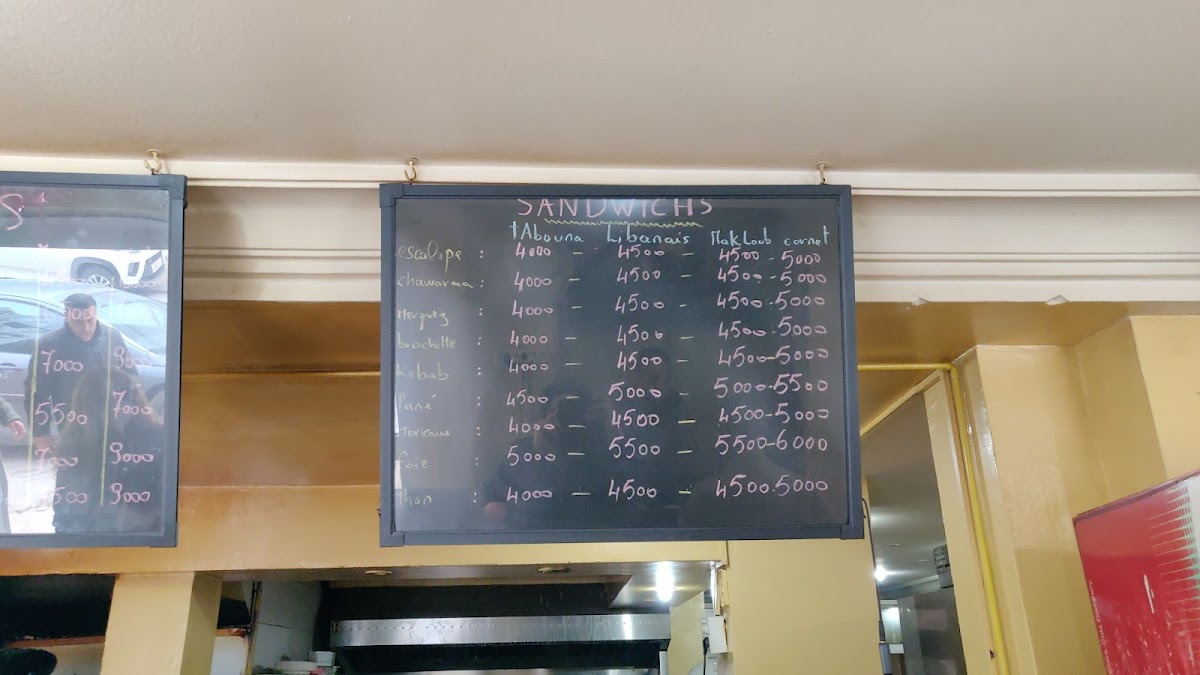 S
7000 9000
5500 7000
7000 9000
500 9000
SANDWICHS
tAbouna Libanais Makloub cornet
escalope : 4000 - 4500 - 4500 - 5000
chawarma : 4000 - 4500 - 4500 - 5000
Merguez : 4000 - 4500 - 4500 - 5000
brochette : 4000 - 4500 - 4500 - 5000
kebab : 4000 - 4500 - 4500 - 5000
Pané : 4500 - 5000 - 5000 - 5500
: 4000 - 4500 - 4500 - 5000
foie : 5000 - 5500 - 5500 - 6000
thon : 4000 - 4500 - 4500 - 5000